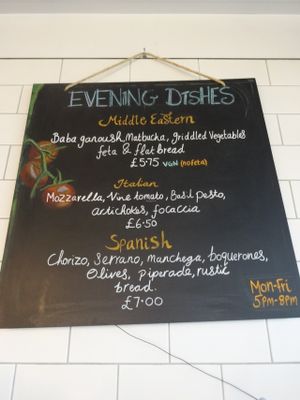 EVENING DISHES
Middle Eastern
Baba ganoush, Matbucha, griddled Vegetables
feta & flatbread
£5.75 VGN (no feta)
Italian
Mozzarella, Vine tomato, Basil pesto,
artichokes, focaccia
£6.50
Spanish
Chorizo, serrano, manchega, boquerones,
Olives, piperade, rustic
bread.
£7.00
Mon-Fri
5pm-8pm